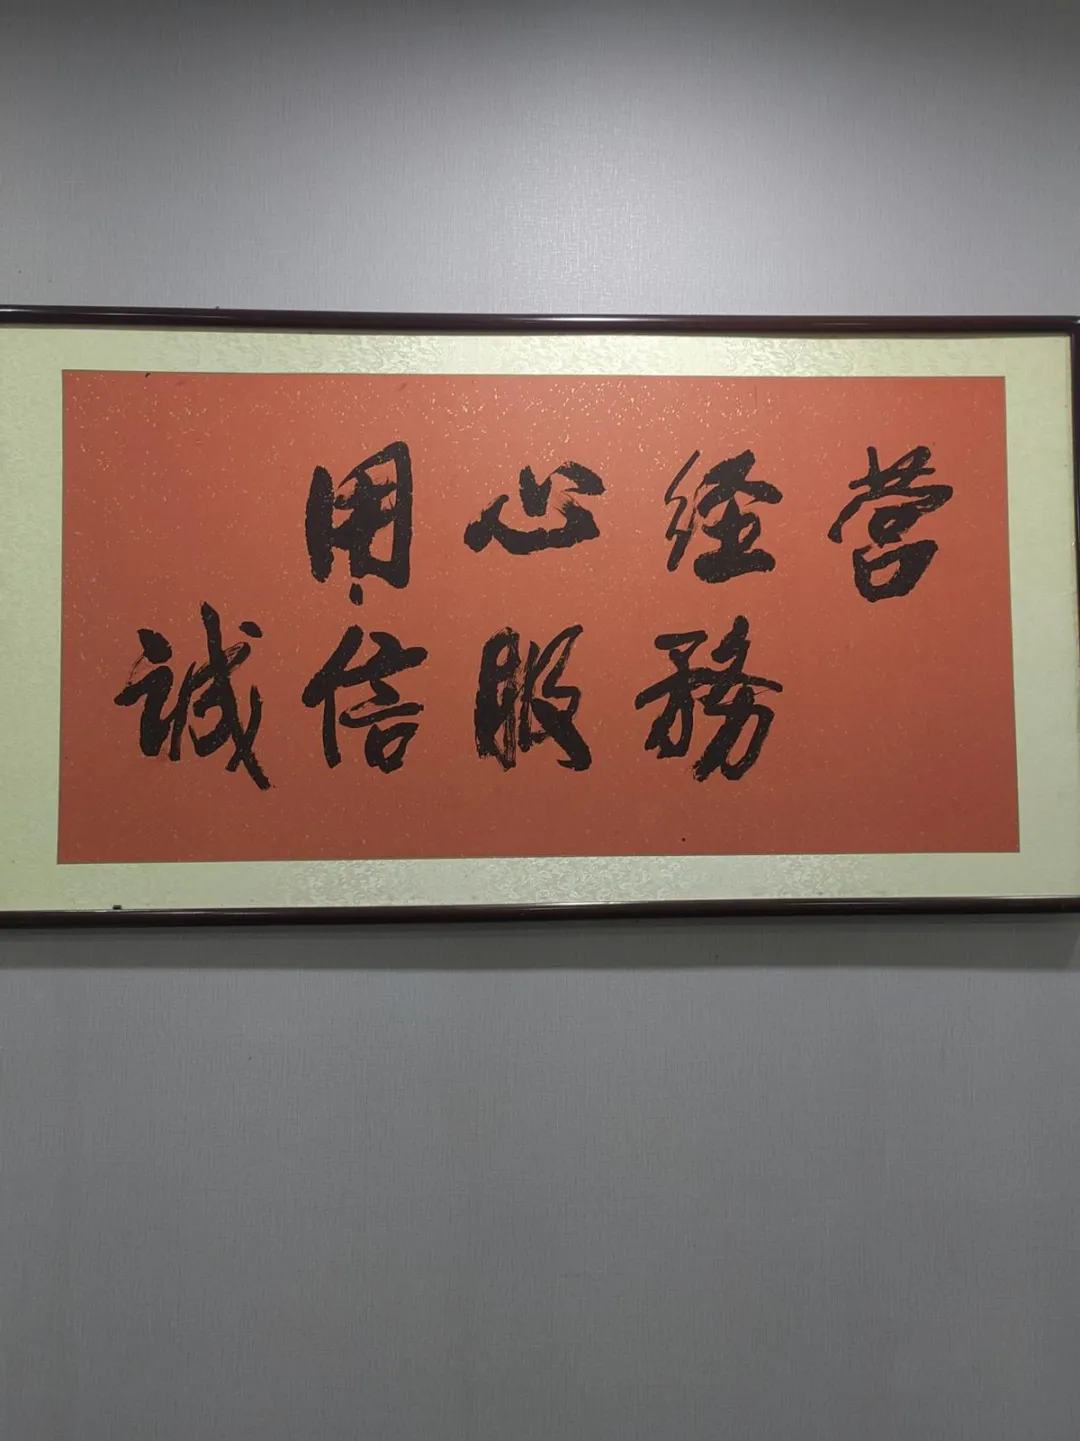 用心经营
诚信服務